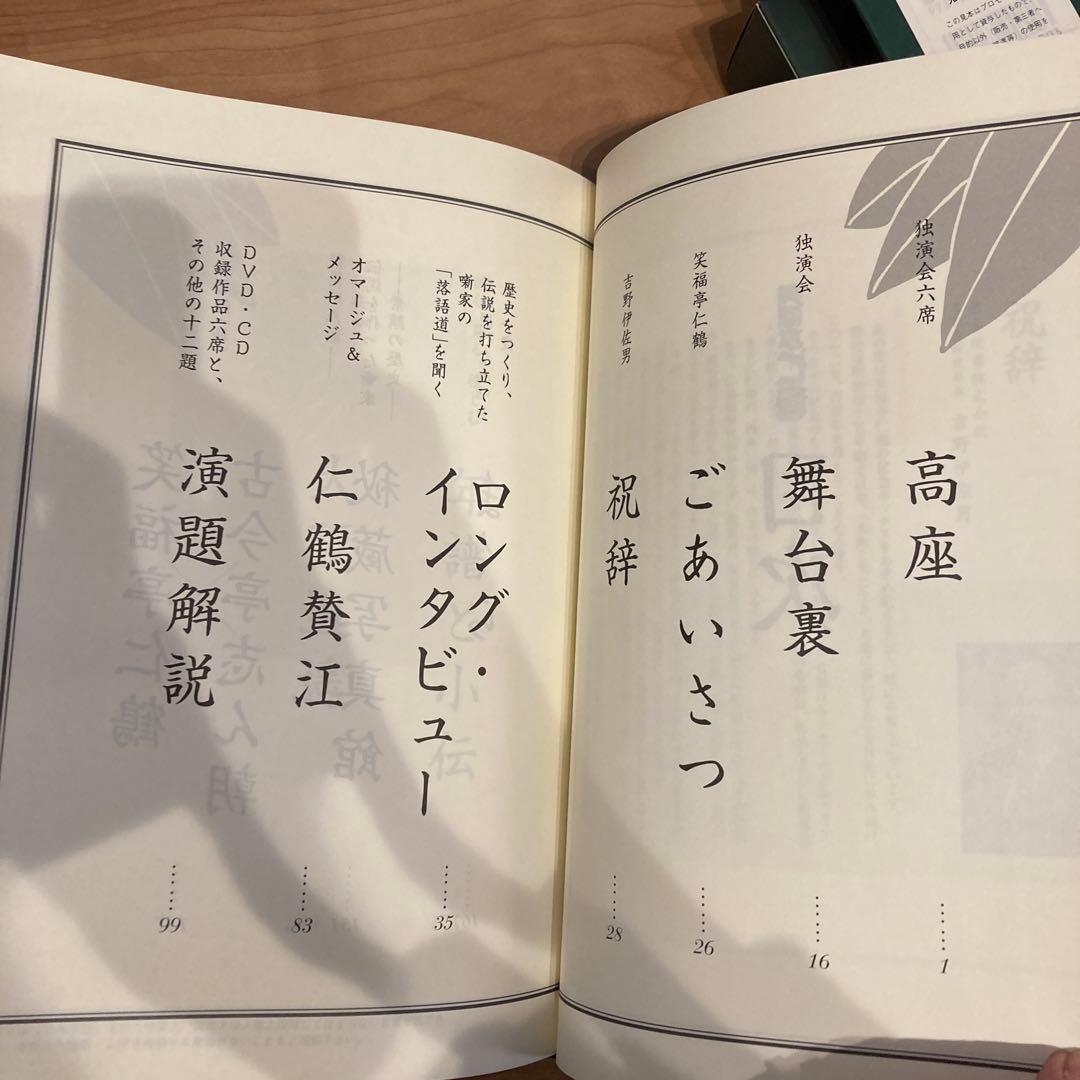 独演会六席
高座
……1
独演会
舞台裏
……16
笑福亭仁鶴
ごあいさつ
……26
吉野伊佐男
祝辞
……28
歴史をつくり、
伝説を打ち立てた
噺家の
「落語道」を聞く
ロング・
インタビュー
……35
オマージュ&
メッセージ
仁鶴賛江
……83
DVD・CD
収録作品六席と、
その他の十二題
演題解説
……99
この見本はプロモ
用として貸与したもので